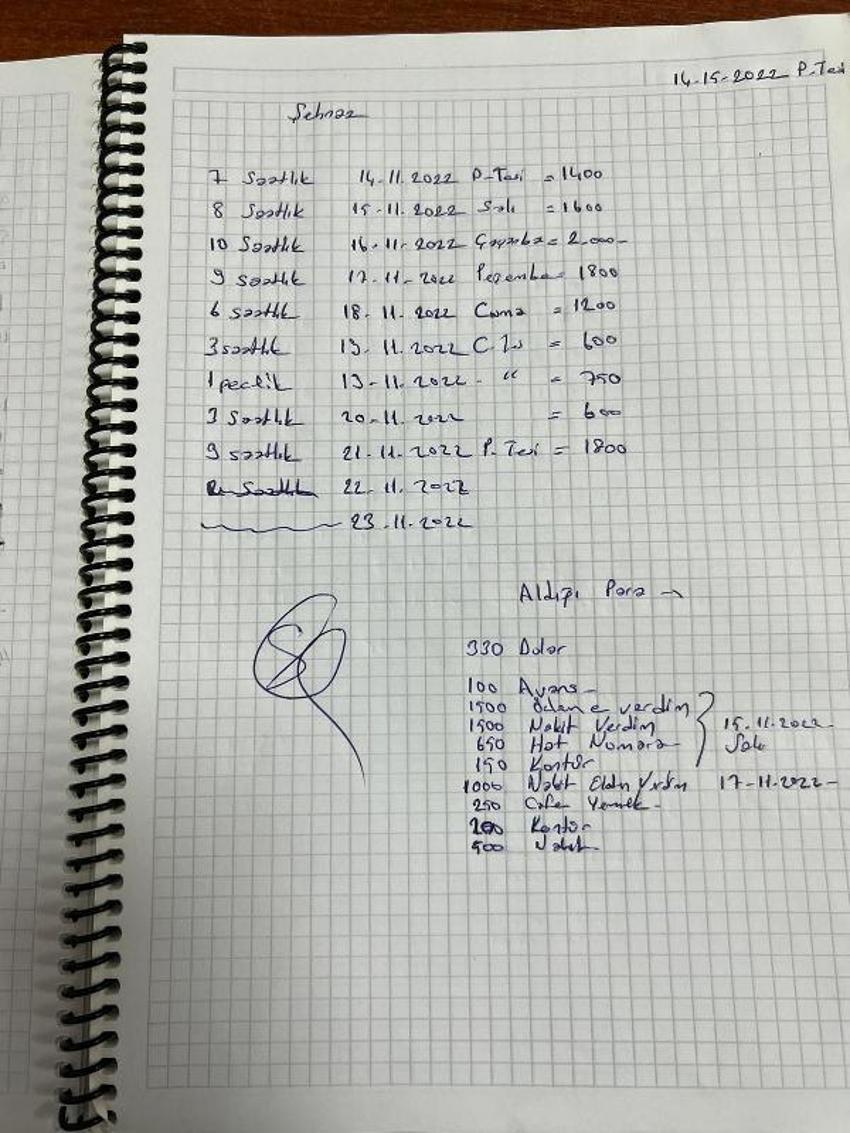 14-15-2022 P.Tesi
Şehnaz
7 Saatlik 14-11.2022 P-Tesi = 1400
8 Saatlik 15-11.2022 Salı = 1600
10 Saatlik 16-11-2022 Çarşamba = 2.000-
9 saatlik 17-11-2022 Perşembe = 1800
6 saatlik 18-11.2022 Cuma = 1200
3 saatlik 19.11.2022 C.Ts = 600
1 pectik 19-11.2022- " = 750
3 Saatlik 20-11.2022 = 600
9 saatlik 21-11.2022 P.Tesi = 1800
22.11.2022
23.11.2022
Aldığı Para
330 Dolar
100 Avans-
1500 verdim
1500 Nakit Verdim 15.11.2022-
650 Hat Numara- Salı
150 Kontör
1000 Nakit Elden Verdim 17-11-2022-
250 Cafe Yemek-
200 Kontör
500 Nakit-